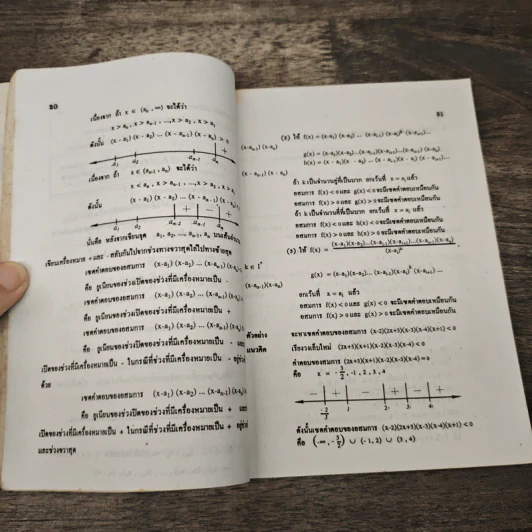 20
เนื่องจาก ถ้า x ∈ (aₙ, ∞) จะได้ว่า
x > aₙ, x > aₙ₋₁, ..., x > a₂, x > a₁
ดังนั้น (x-a₁) (x-a₂) ... (x-aₙ₋₁) (x-aₙ) > 0
a₁ a₂ aₙ₋₁ aₙ
เนื่องจาก ถ้า x ∈ (aₙ₋₁, aₙ) จะได้ว่า
x < aₙ, x > aₙ₋₁ ... x > a₂, x > a₁
ดังนั้น (x-a₁) (x-a₂) ... (x-aₙ₋₁) (x-aₙ) < 0
− +
a₁ a₂ aₙ₋₁ aₙ
นั่นคือ หลังจากเขียนจุด a₁, a₂, ... aₙ₋₁, aₙ บนเส้นจำนวน
เขียนเครื่องหมาย + และ - สลับกันไปจากช่วงทางขวาสุดไปทางซ้ายสุด
เซตคำตอบของอสมการ (x-a₁) (x-a₂) ... (x-aₙ₋₁)
คือ ยูเนียนของช่วงเปิดของช่วงที่มีเครื่องหมายเป็น -
เซตคำตอบของอสมการ (x-a₁) (x-a₂) ... (x-aₙ₋₁)
คือ ยูเนียนของช่วงเปิดของช่วงที่มีเครื่องหมายเป็น +
เซตคำตอบของอสมการ (x-a₁) (x-a₂) ... (x-aₙ₋₁) (x-aₙ)
คือ ยูเนียนของช่วงเปิดของช่วงที่มีเครื่องหมายเป็น - และ
เปิดของช่วงที่มีเครื่องหมายเป็น - ในกรณีที่ช่วงที่มีเครื่องหมายเป็น - อยู่
ด้วย
เซตคำตอบของอสมการ (x-a₁) (x-a₂) ... (x-aₙ₋₁) (x-aₙ)
คือ ยูเนียนของช่วงปิดของช่วงที่มีเครื่องหมายเป็น + และ
เปิดของช่วงที่มีเครื่องหมายเป็น + ในกรณีที่ช่วงที่มีเครื่องหมายเป็น + อยู่
และช่วงขวาสุด
(x-aₙ₋₁) (x-aₙ)
(x-aₙ₋₁) (x-aₙ)
k ∈ I⁺
(x-aₙ₋₁)(x-aₙ)
ตัวอย่าง
แนวคิด
21
g(x) = (x-a₁)(x-a₂)...
ถ้า k เป็นจำนวนคู่ที่เป็นบวก ยกเว้นที่ x = aᵢ แล้ว
อสมการ f(x) < 0 และ g(x) < 0 จะมีเซตคำตอบเหมือนกัน
อสมการ f(x) > 0 และ g(x) > 0 จะมีเซตคำตอบเหมือนกัน
ถ้า k เป็นจำนวนคี่ที่เป็นบวก ยกเว้นที่ x = aᵢ แล้ว
อสมการ f(x) < 0 และ h(x) < 0 จะมีเซตคำตอบเหมือนกัน
อสมการ f(x) > 0 และ h(x) > 0 จะมีเซตคำตอบเหมือนกัน
ยกเว้นที่ x = aᵢ แล้ว
อสมการ f(x) < 0 และ g(x) < 0 จะมีเซตคำตอบเหมือนกัน
อสมการ f(x) > 0 และ g(x) > 0 จะมีเซตคำตอบเหมือนกัน
จะหาเซตคำตอบของอสมการ (x-2)(2x+3)(x-3)(x-4)(x+1) < 0
เรียงวงเล็บใหม่ (2x+3)(x+1)(x-2)(x-3)(x-4) < 0
คำตอบของสมการ (2x+3)(x+1)(x-2)(x-3)(x-4) = 0
คือ x = -3/2, -1, 2, 3, 4
− + − + − +
ดังนั้นเซตคำตอบของอสมการ (x-2)(2x+3)(x-3)(x-4)(x+1) < 0
คือ (-∞, -3/2) ∪ (-1, 2) ∪ (3, 4)